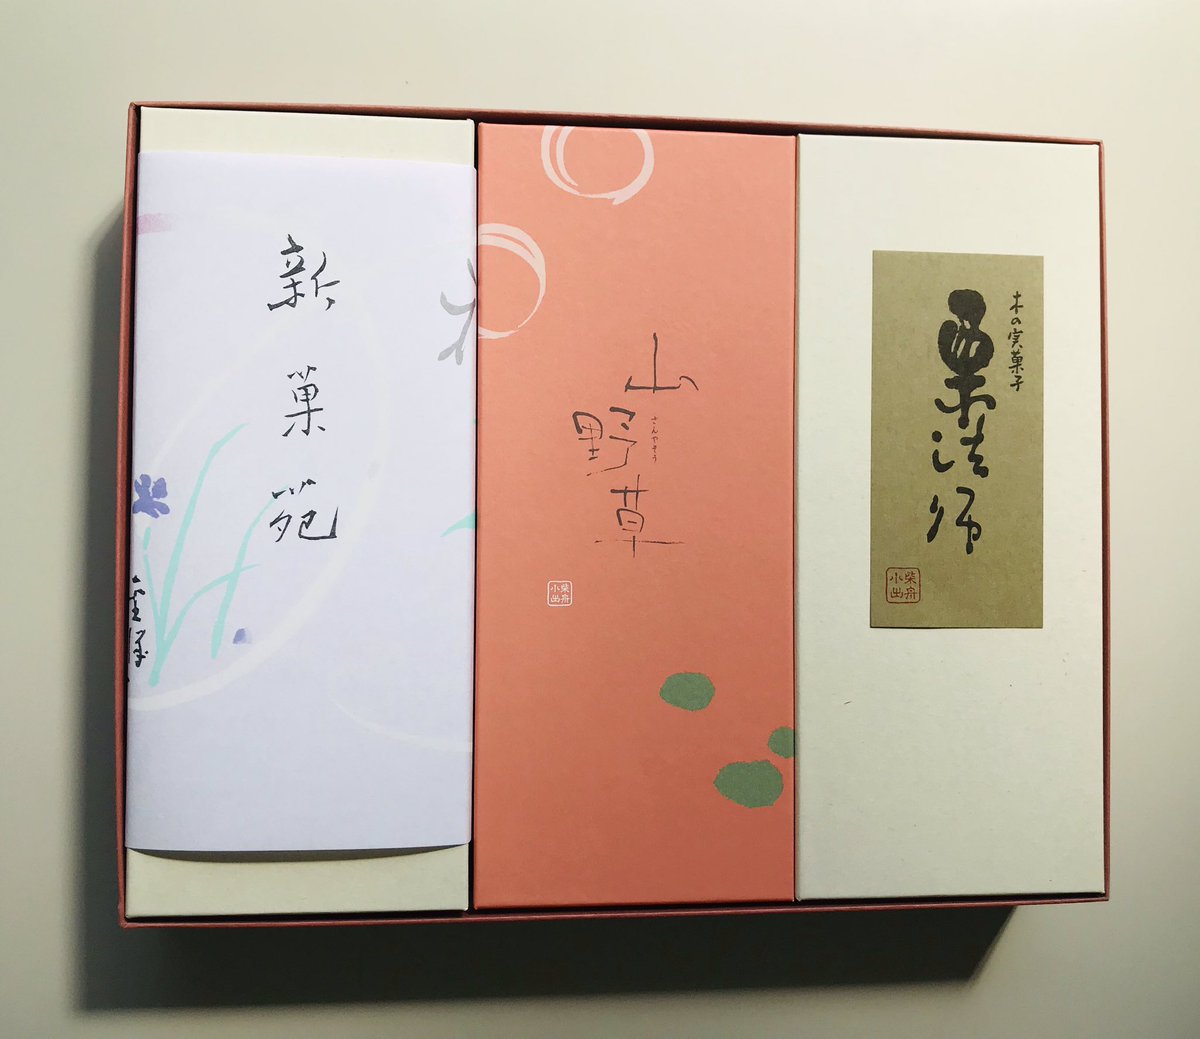 新菓苑
山野草
さんやそう
柴舟
小出
木の実菓子
栗法師
柴舟
小出